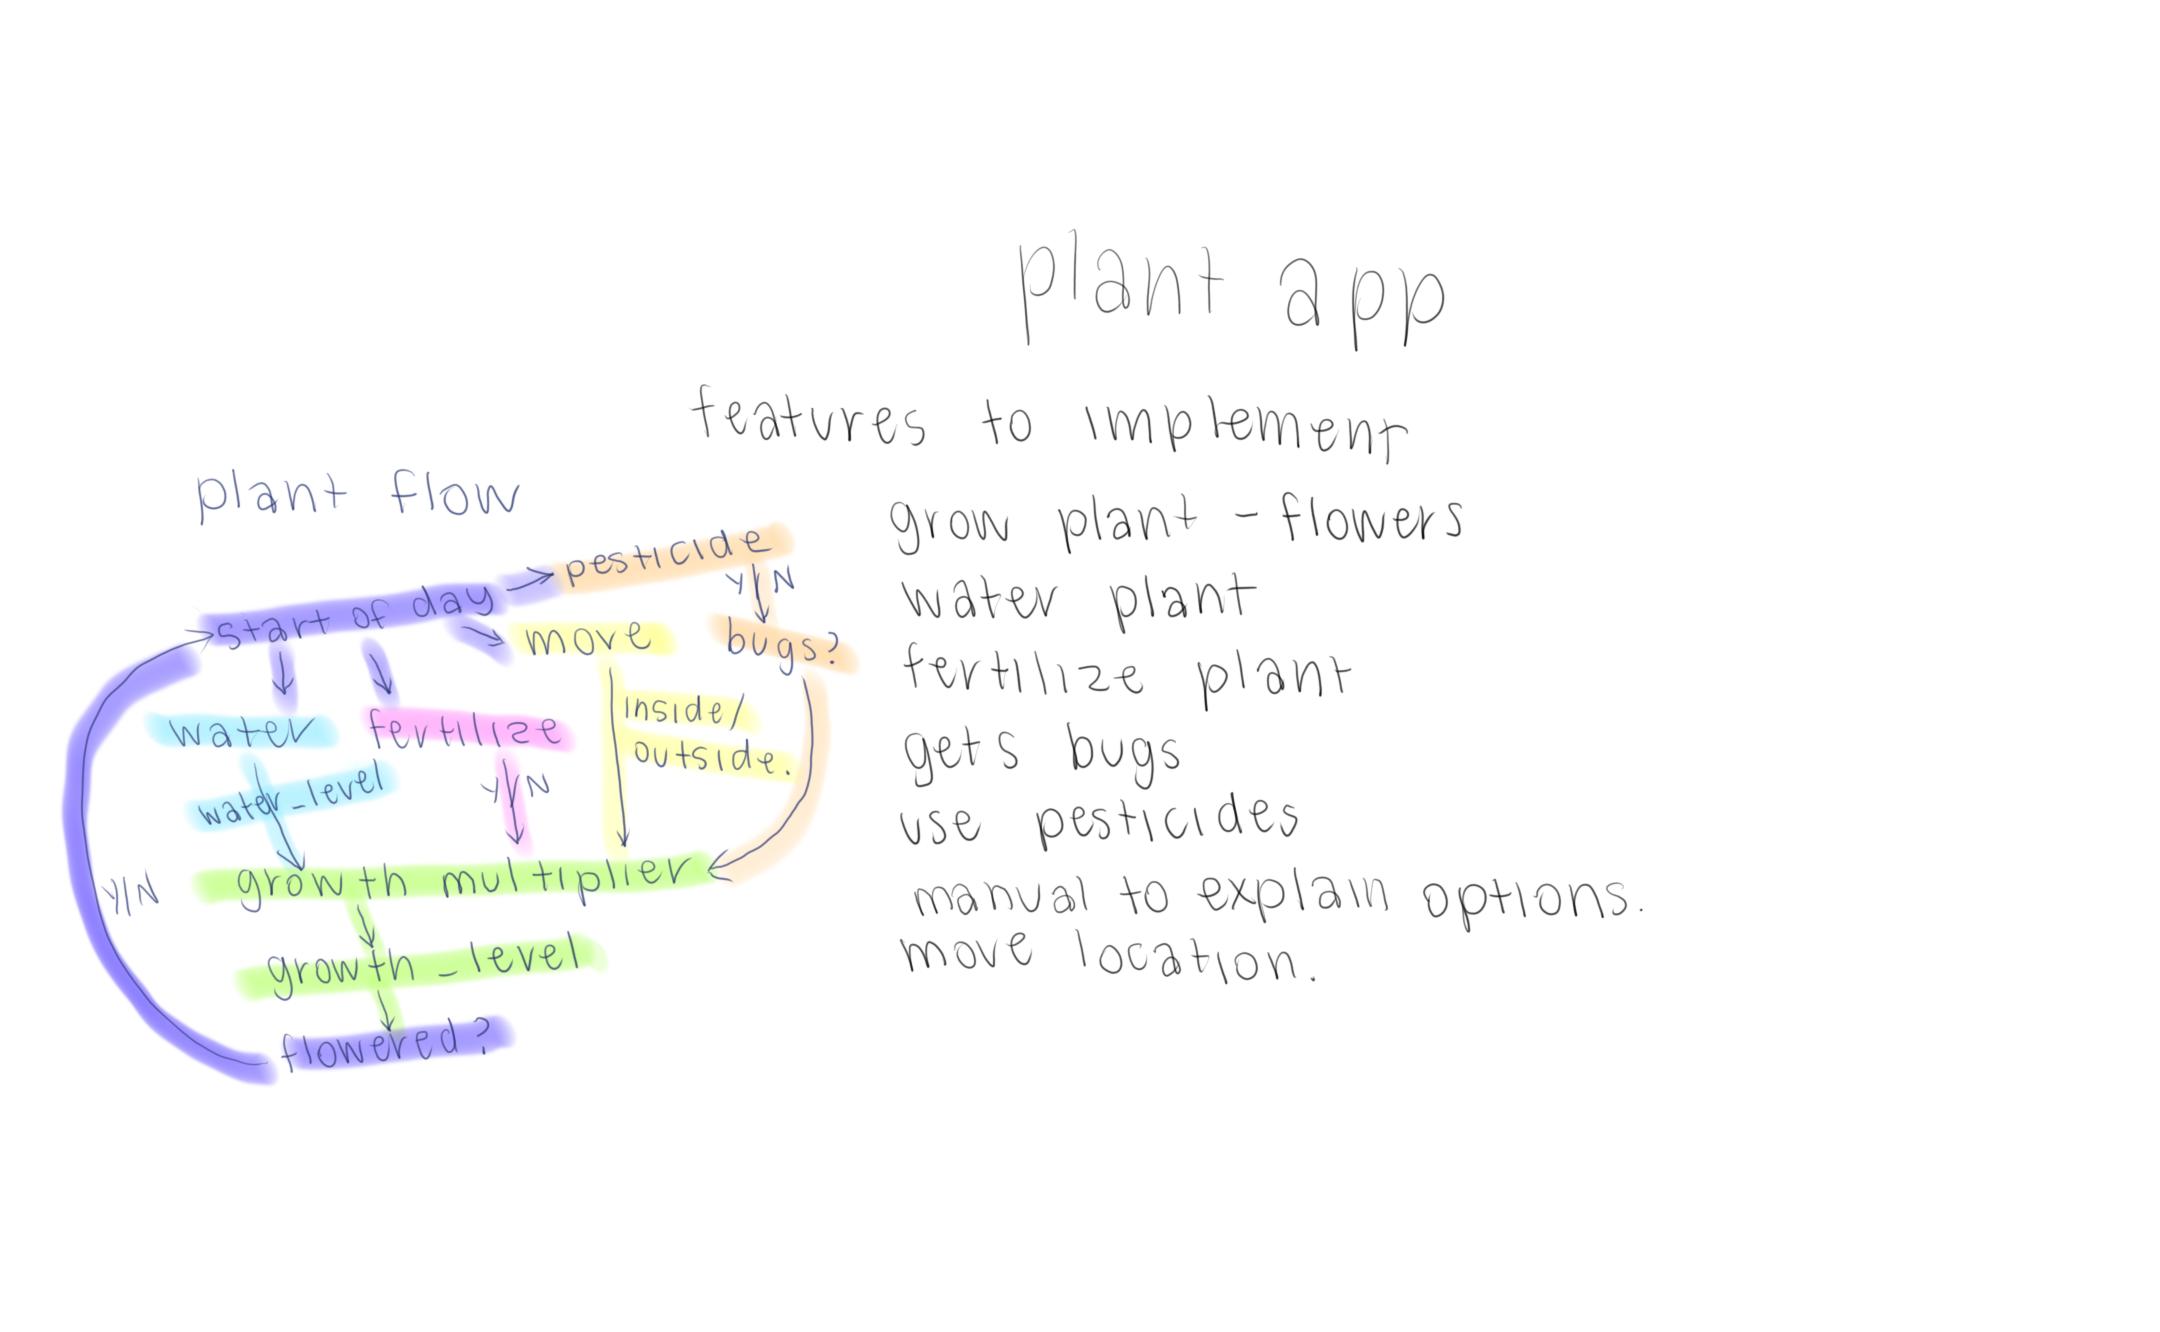 plant app
features to implement
grow plant - flowers
water plant
fertilize plant
gets bugs
use pesticides
manual to explain options.
move location.
plant flow
pesticide
Y/N
start of day
move
bugs?
inside/
outside.
water
fertilize
water_level
Y/N
growth multiplier
Y/N
growth_level
flowered?